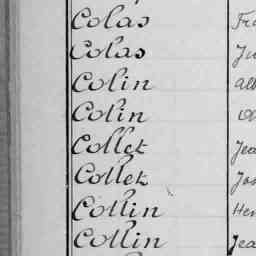 Colas
Colas
Colin
Colin
Collet
Collet
Collin Hen
Collin Jea